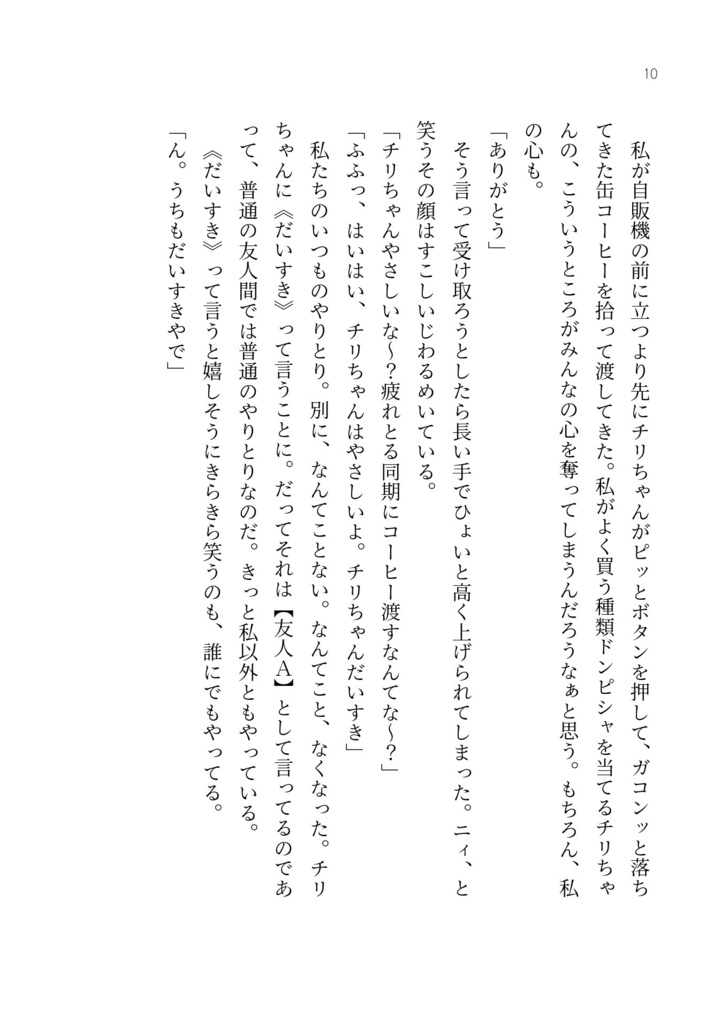 10
　私が自販機の前に立つより先にチリちゃんがピッとボタンを押して、ガコンッと落ち
てきた缶コーヒーを拾って渡してきた。私がよく買う種類ドンピシャを当てるチリちゃ
んの、こういうところがみんなの心を奪ってしまうんだろうなぁと思う。もちろん、私
の心も。
「ありがとう」
　そう言って受け取ろうとしたら長い手でひょいと高く上げられてしまった。ニィ、と
笑うその顔はすこしいじわるめいている。
「チリちゃんやさしいな〜？疲れとる同期にコーヒー渡すなんてな〜？」
「ふふっ、はいはい、チリちゃんはやさしいよ。チリちゃんだいすき」
　私たちのいつものやりとり。別に、なんてことない。なんてこと、なくなった。チリ
ちゃんに《だいすき》って言うことに。だってそれは【友人Ａ】として言ってるのであ
って、普通の友人間では普通のやりとりなのだ。きっと私以外ともやっている。
　《だいすき》って言うと嬉しそうにきらきら笑うのも、誰にでもやってる。
「ん。うちもだいすきやで」